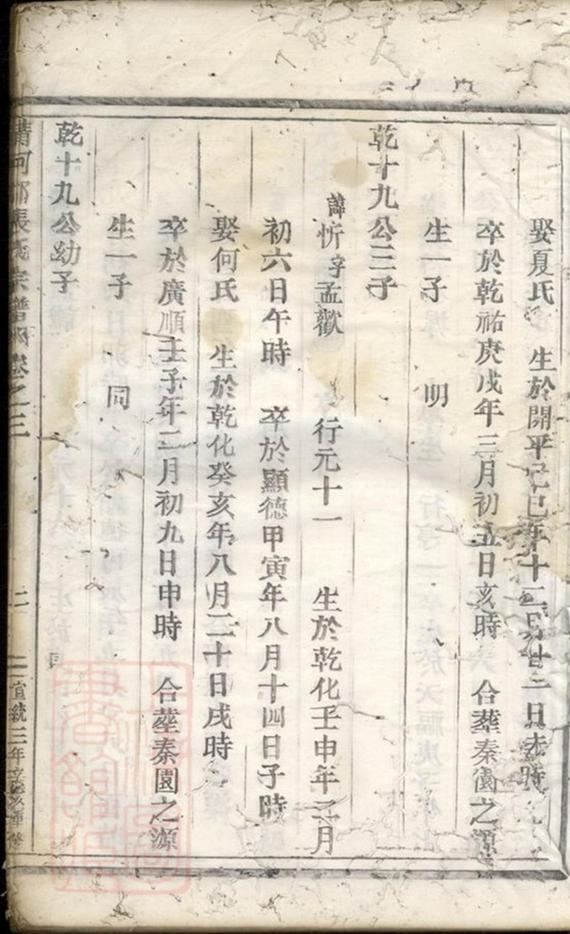 娶夏氏 生於開平己巳年十二月廿二日未時
卒於乾祐庚戌年三月初五日亥時 合塟秦園之源
生一子 明
乾十九公三子
諱忻字孟歡 行元十一 生於乾化壬申年二月
初六日午時 卒於顯德甲寅年八月十四日子時
娶何氏 生於乾化癸亥年八月二十日戌時
卒於廣順壬子年二月初九日申時 合塟秦園之源
生一子 同
乾十九公幼子
清河郡張氏宗譜 卷之三
二
宣統三年辛亥重修